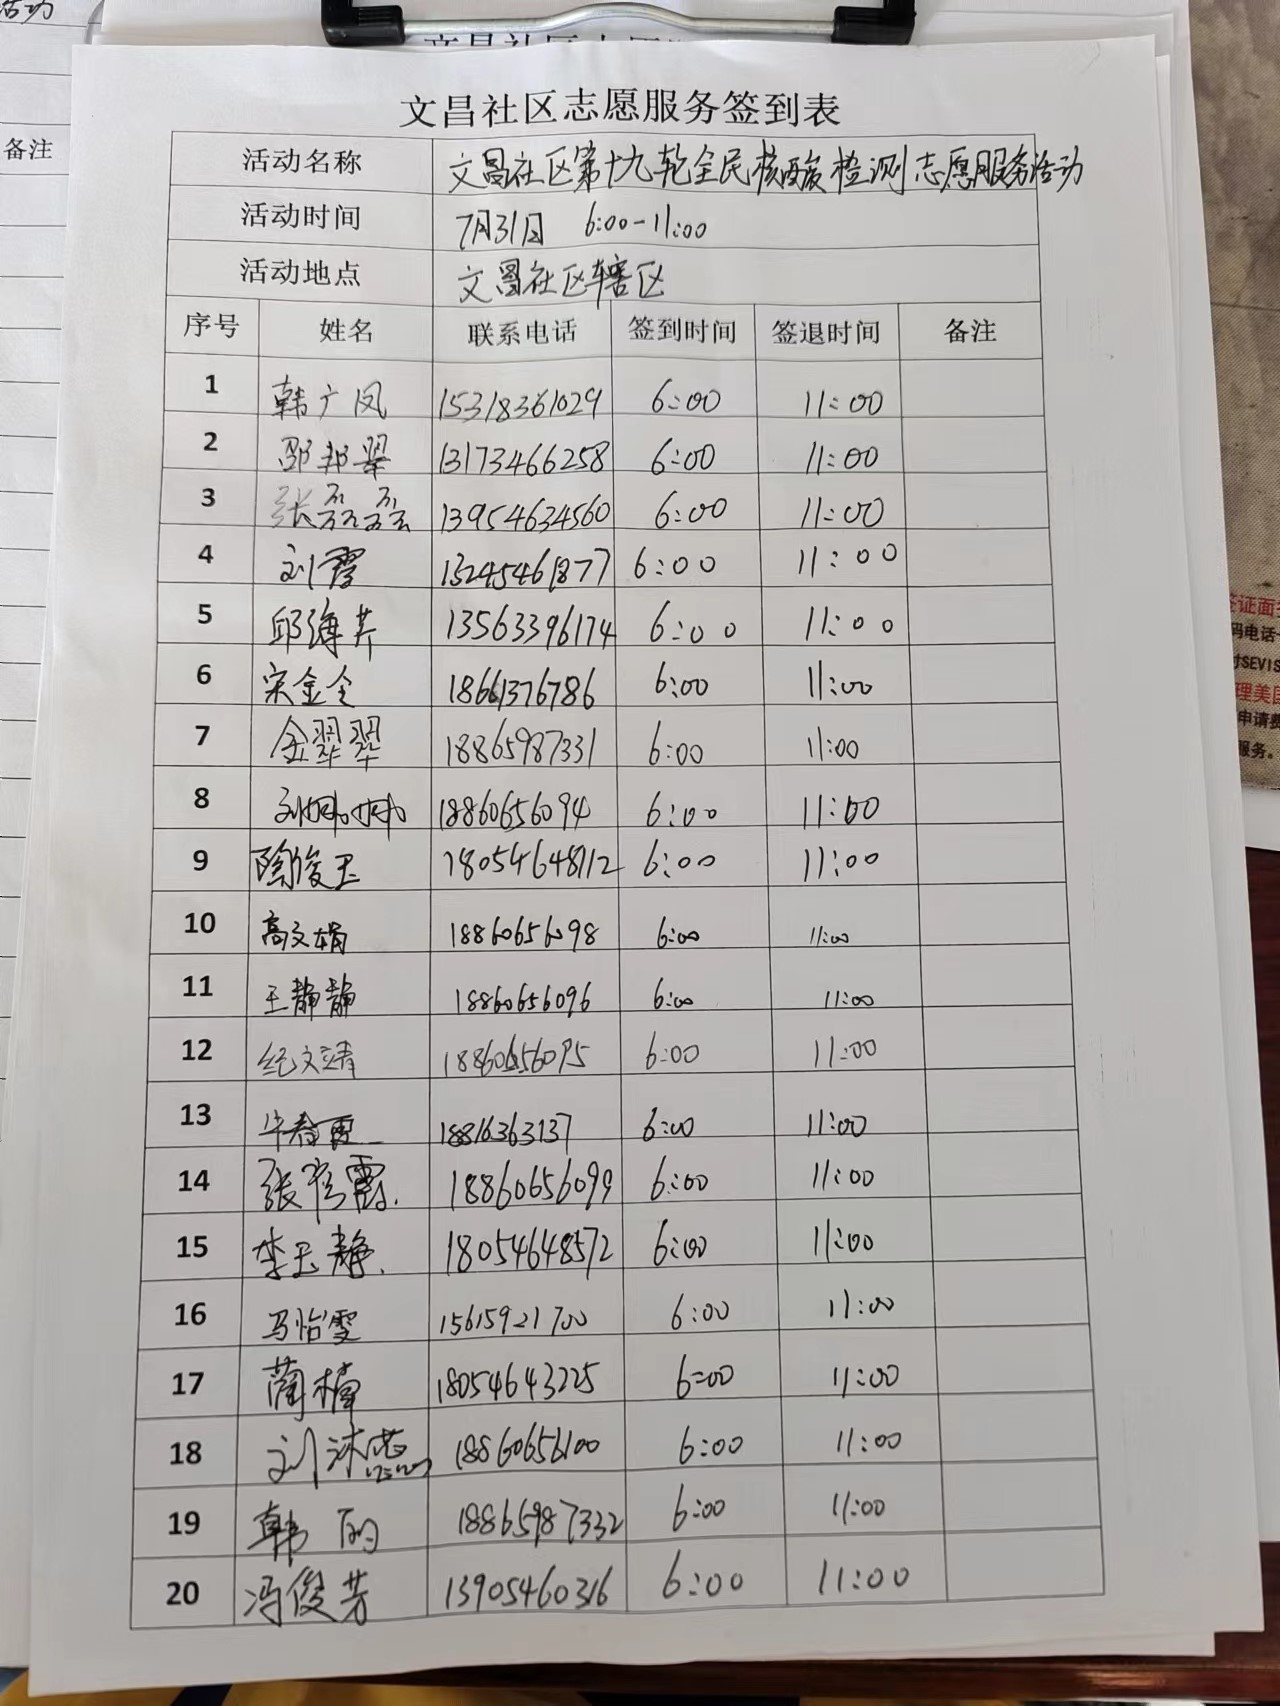 活动
备注
文昌社区志愿服务签到表
活动名称 文昌社区第十九轮全民核酸检测志愿服务活动
活动时间 7月31日 6:00-11:00
活动地点 文昌社区辖区
序号 姓名 联系电话 签到时间 签退时间 备注
1 韩广凤 15318361029 6:00 11:00
2 邵邦翠 13173466258 6:00 11:00
3 张磊磊 13954634560 6:00 11:00
4 刘霞 13245461877 6:00 11:00
5 邱海芹 13563396174 6:00 11:00
6 宋金全 18661376786 6:00 11:00
7 金翠翠 18865987331 6:00 11:00
8 刘娜娜 18860656094 6:00 11:00
9 陶俊玉 18054648712 6:00 11:00
10 高文娟 18860656098 6:00 11:00
11 王静静 18860656096 6:00 11:00
12 纪文靖 18860656095 6:00 11:00
13 18816363137 6:00 11:00
14 张彦霞 18860656099 6:00 11:00
15 李玉静 18054648572 6:00 11:00
16 马怡雯 15615921700 6:00 11:00
17 蔺楠 18054643225 6:00 11:00
18 刘沐 18860656100 6:00 11:00
19 韩 18865987332 6:00 11:00
20 冯俊芳 13905460316 6:00 11:00
签证面
码电话
付SEVIS
理美国
申请费
服务。